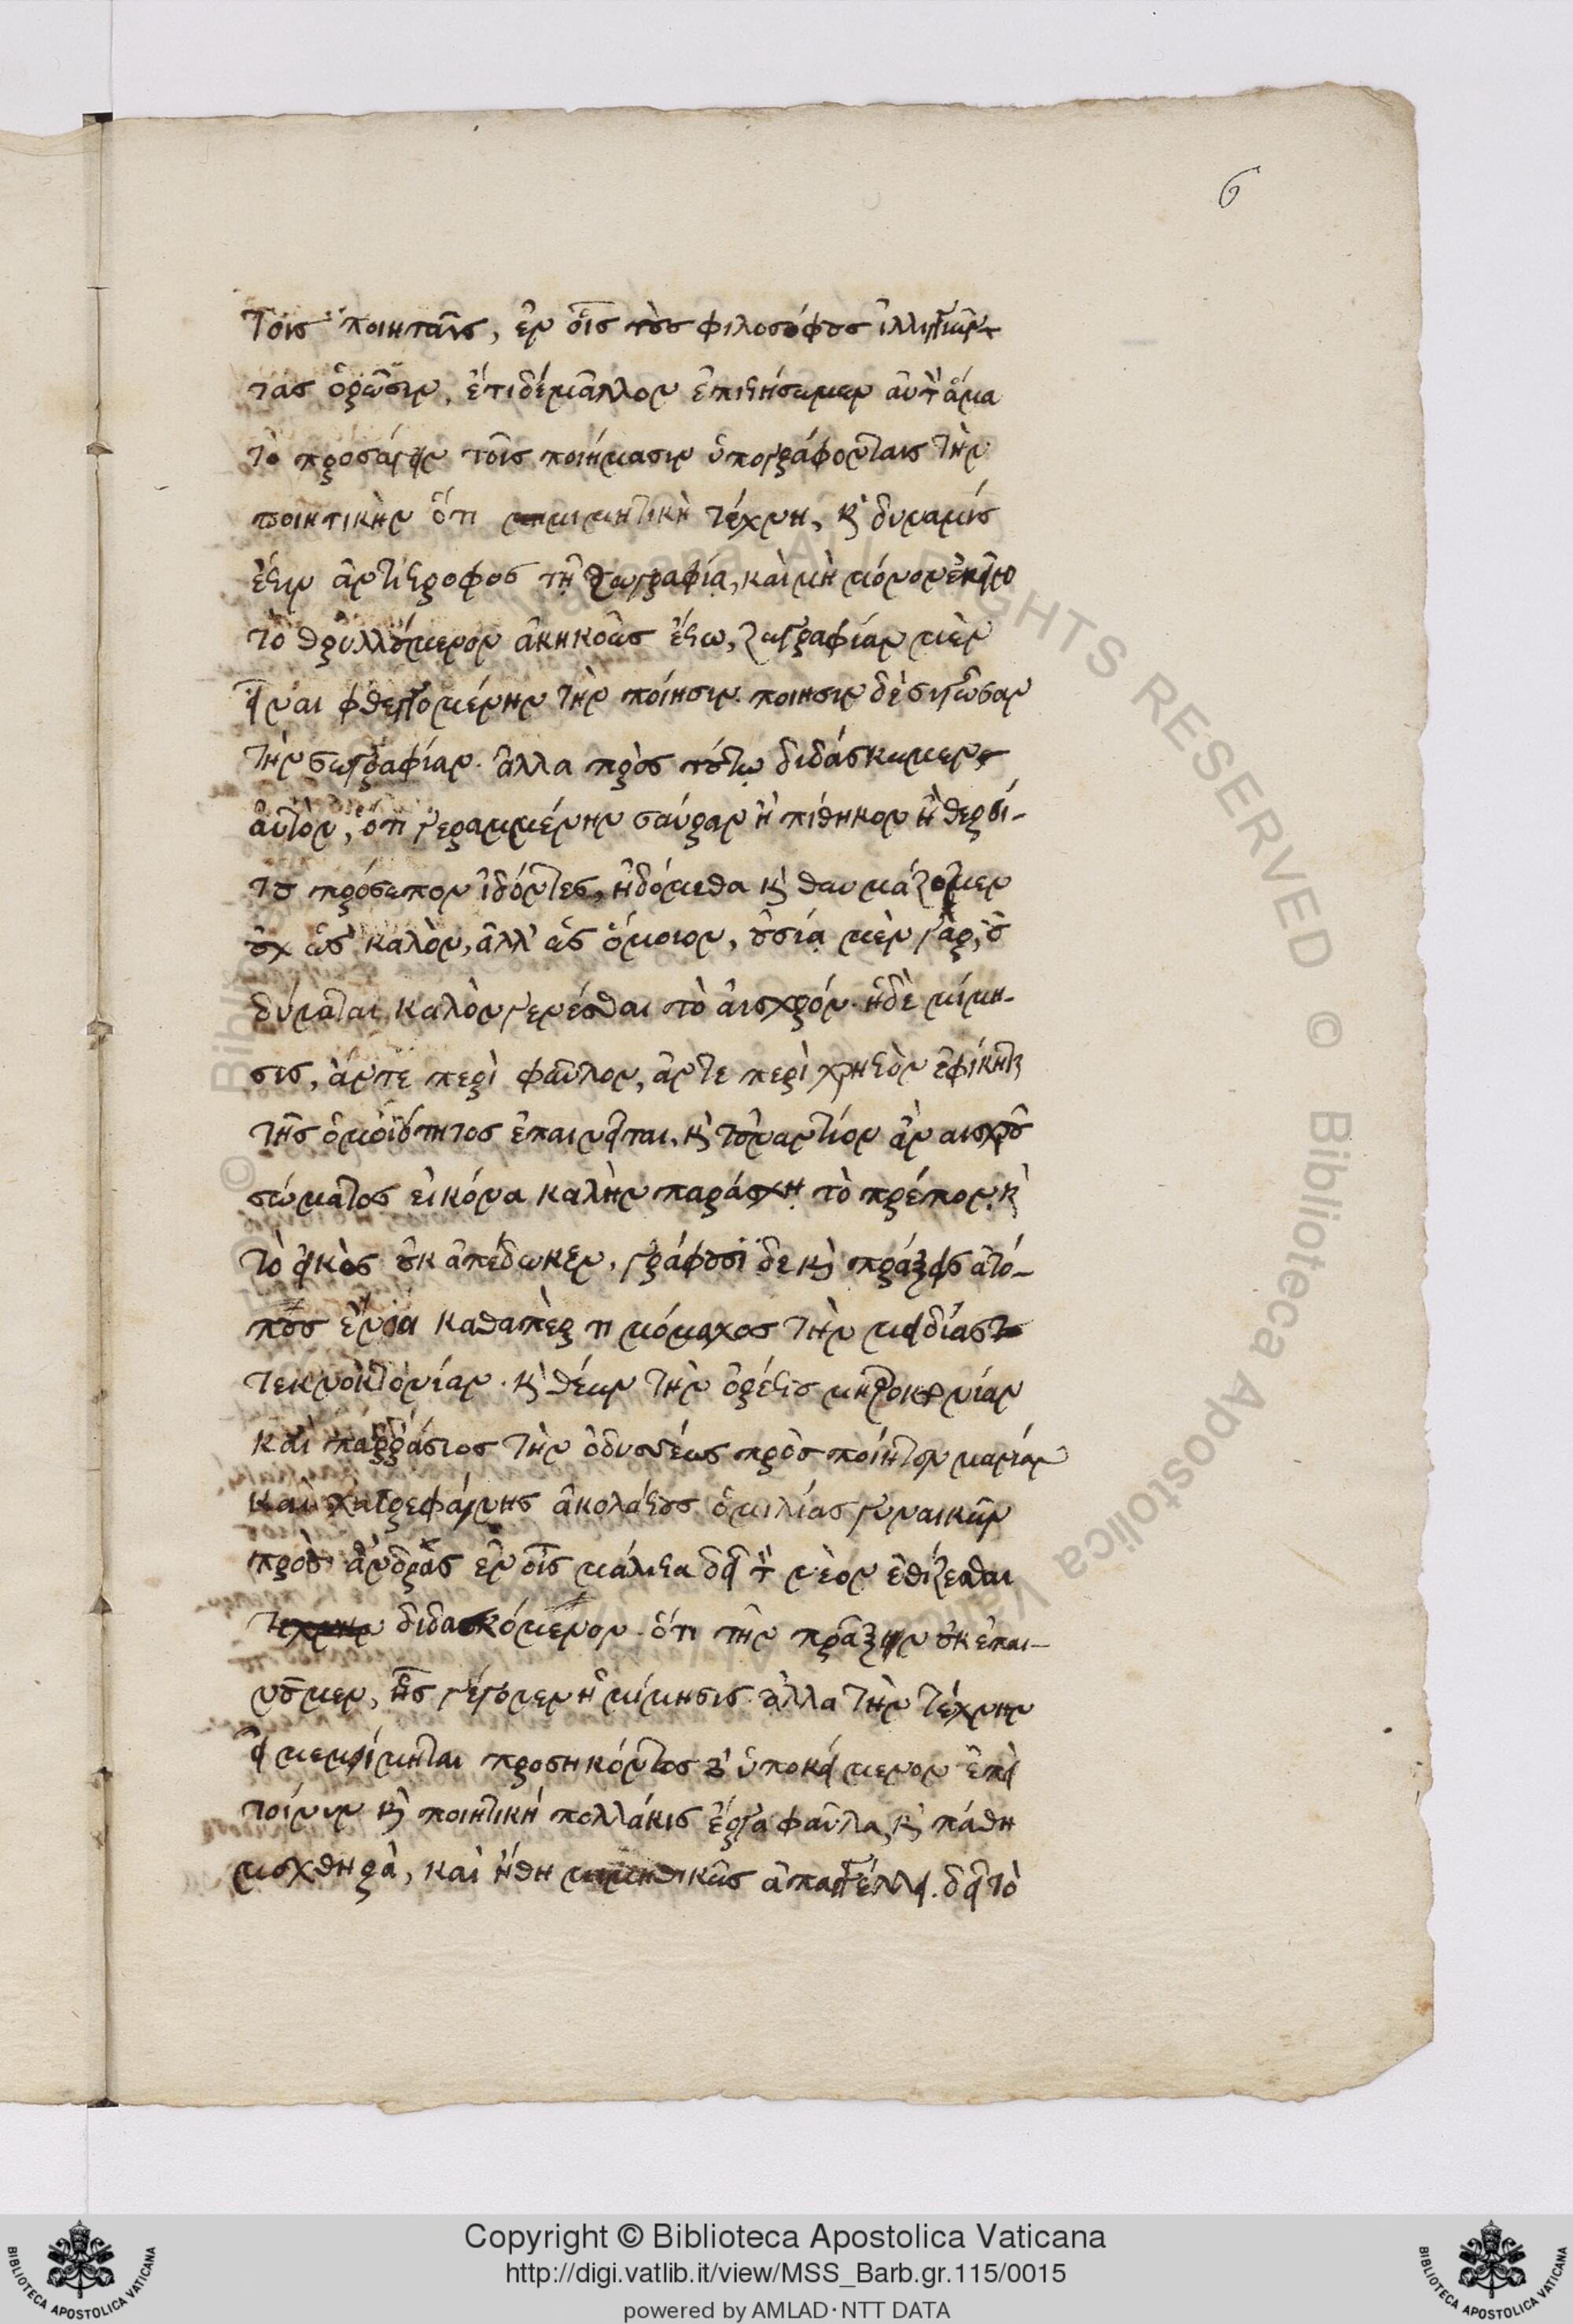 6
τοῖς ποιηταῖς, ἐν οἷς τοὺς φιλοσόφους ἰλλιγγιῶν-
τας ὁρῶσιν, ἔτι δὲ μᾶλλον ἐπιστήσωμεν αὐτὸν ἅμα
τὸ προσάγειν τοῖς ποιήμασιν ὑπογράφονταις τὴν
ποιητικὴν ὅτι μιμητικὴ τέχνη, κ̀ δυναμίς
ἐστιν ἀντίστροφος τῇ ζωγραφίᾳ, καὶ μὴ μόνον ἐκεῖνο
τὸ θρυλλούμενον ἀκηκοὼς ἔστω, ζωγραφίαν μὲν
εἶναι φθεγγομένην τὴν ποίησιν. ποιησιν δὲ σιγῶσαν
τὴν ζωγραφίαν. ἀλλα πρὸς τούτῳ διδάσκωμεν
αὐτὸν, ὅτι γεγραμμένην σαύραν ἢ πίθηκον ἢ θερσί-
του πρόσωπον ἰδόντες, ἡδόμεθα κ̀ θαυμάζομεν
οὐχ ὡς καλὸν, ἀλλ' ὡς ὅμοιον, οὐσίᾳ μὲν γὰρ, οὐ
δύναται καλὸν γενέσθαι τὸ αἰσχρόν. ἡ δὲ μίμη-
σις, ἄντε περὶ φαῦλον, ἄντε περὶ χρηστὸν ἐφίκηται
τῆς ὁμοιότητος ἐπαινεῖται, κ̀ τοὐναντίον ἂν αισχροῦ
σώματος εἰκόνα καλὴν παράσχῃ τὸ πρέπον, κ̀
τὸ εἰκὸς οὐκ ἀπέδωκεν, γράφουσι δε κ̀ πράξεις ἀτό-
πους ἔνιοι καθαπὲρ τιμόμαχος τὴν μηδείας
τεκνοκτονίαν. κ̀ θέων τὴν ὀρέστου μητροκτονίαν
καὶ παρράσιος τὴν ὀδυσσέως πρὸς ποίητον μανίαν
καὶ χαιρεφάνης ἀκολάστους ὁμιλίας γυναικῶν
πρὸς ἄνδρας ἐν οἷς μάλιστα δεῖ τὸν νέον ἐθίζεσθαι
διδασκόμενον. ὅτι τὴν πρᾶξιν οὐκ ἐπαι-
νοῦμεν, ἧς γέγονεν ἡ μίμησις. ἀλλα τὴν τέχνην
εἰ μεμίμηται προσηκόντως τὸ ὑποκείμενον ἐπεὶ
τοίνυν κ̀ ποιητικὴ πολλάκις ἔργα φαῦλα, κ̀ πάθη
μοχθηρὰ, καὶ ἤθη μιμητικῶς ἀπαγγέλλει. δεῖ τὸ
Copyright © Biblioteca Apostolica Vaticana
http://digi.vatlib.it/view/MSS_Barb.gr.115/0015
powered by AMLAD·NTT DATA